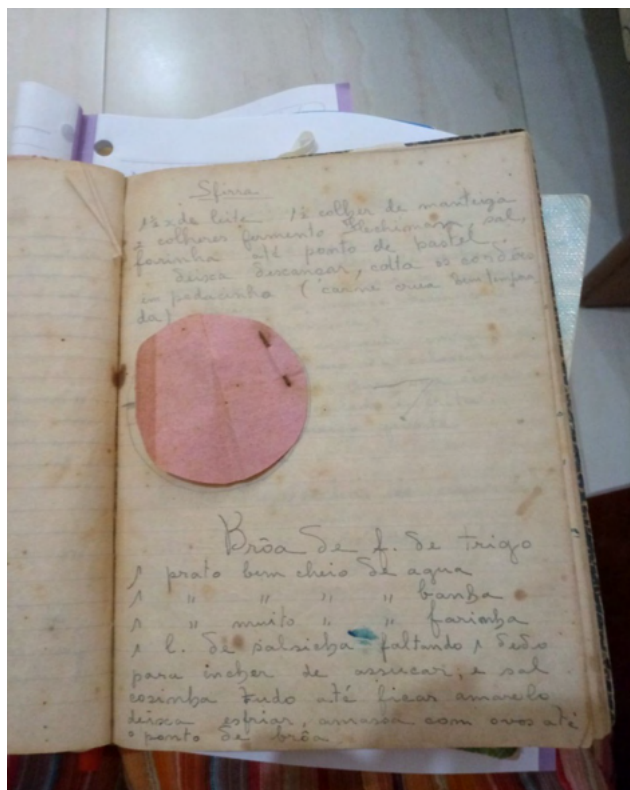 Sfirra
1½ x de leite 1½ colher de manteiga
2 colheres fermento Flechimann, sal,
farinha até ponto de pastel.
deixa descançar, colta os
em pedacinho (carne crua bem tempera
da)
Brôa de f. de trigo
1 prato bem cheio de agua
1 " " " " banha
1 " muito " " farinha
1 l. de salsicha faltando 1 dedo
para incher de assucar, e sal
cosinha tudo até ficar amarelo
deissa esfriar, amassa com ovos até
o ponto de brôa